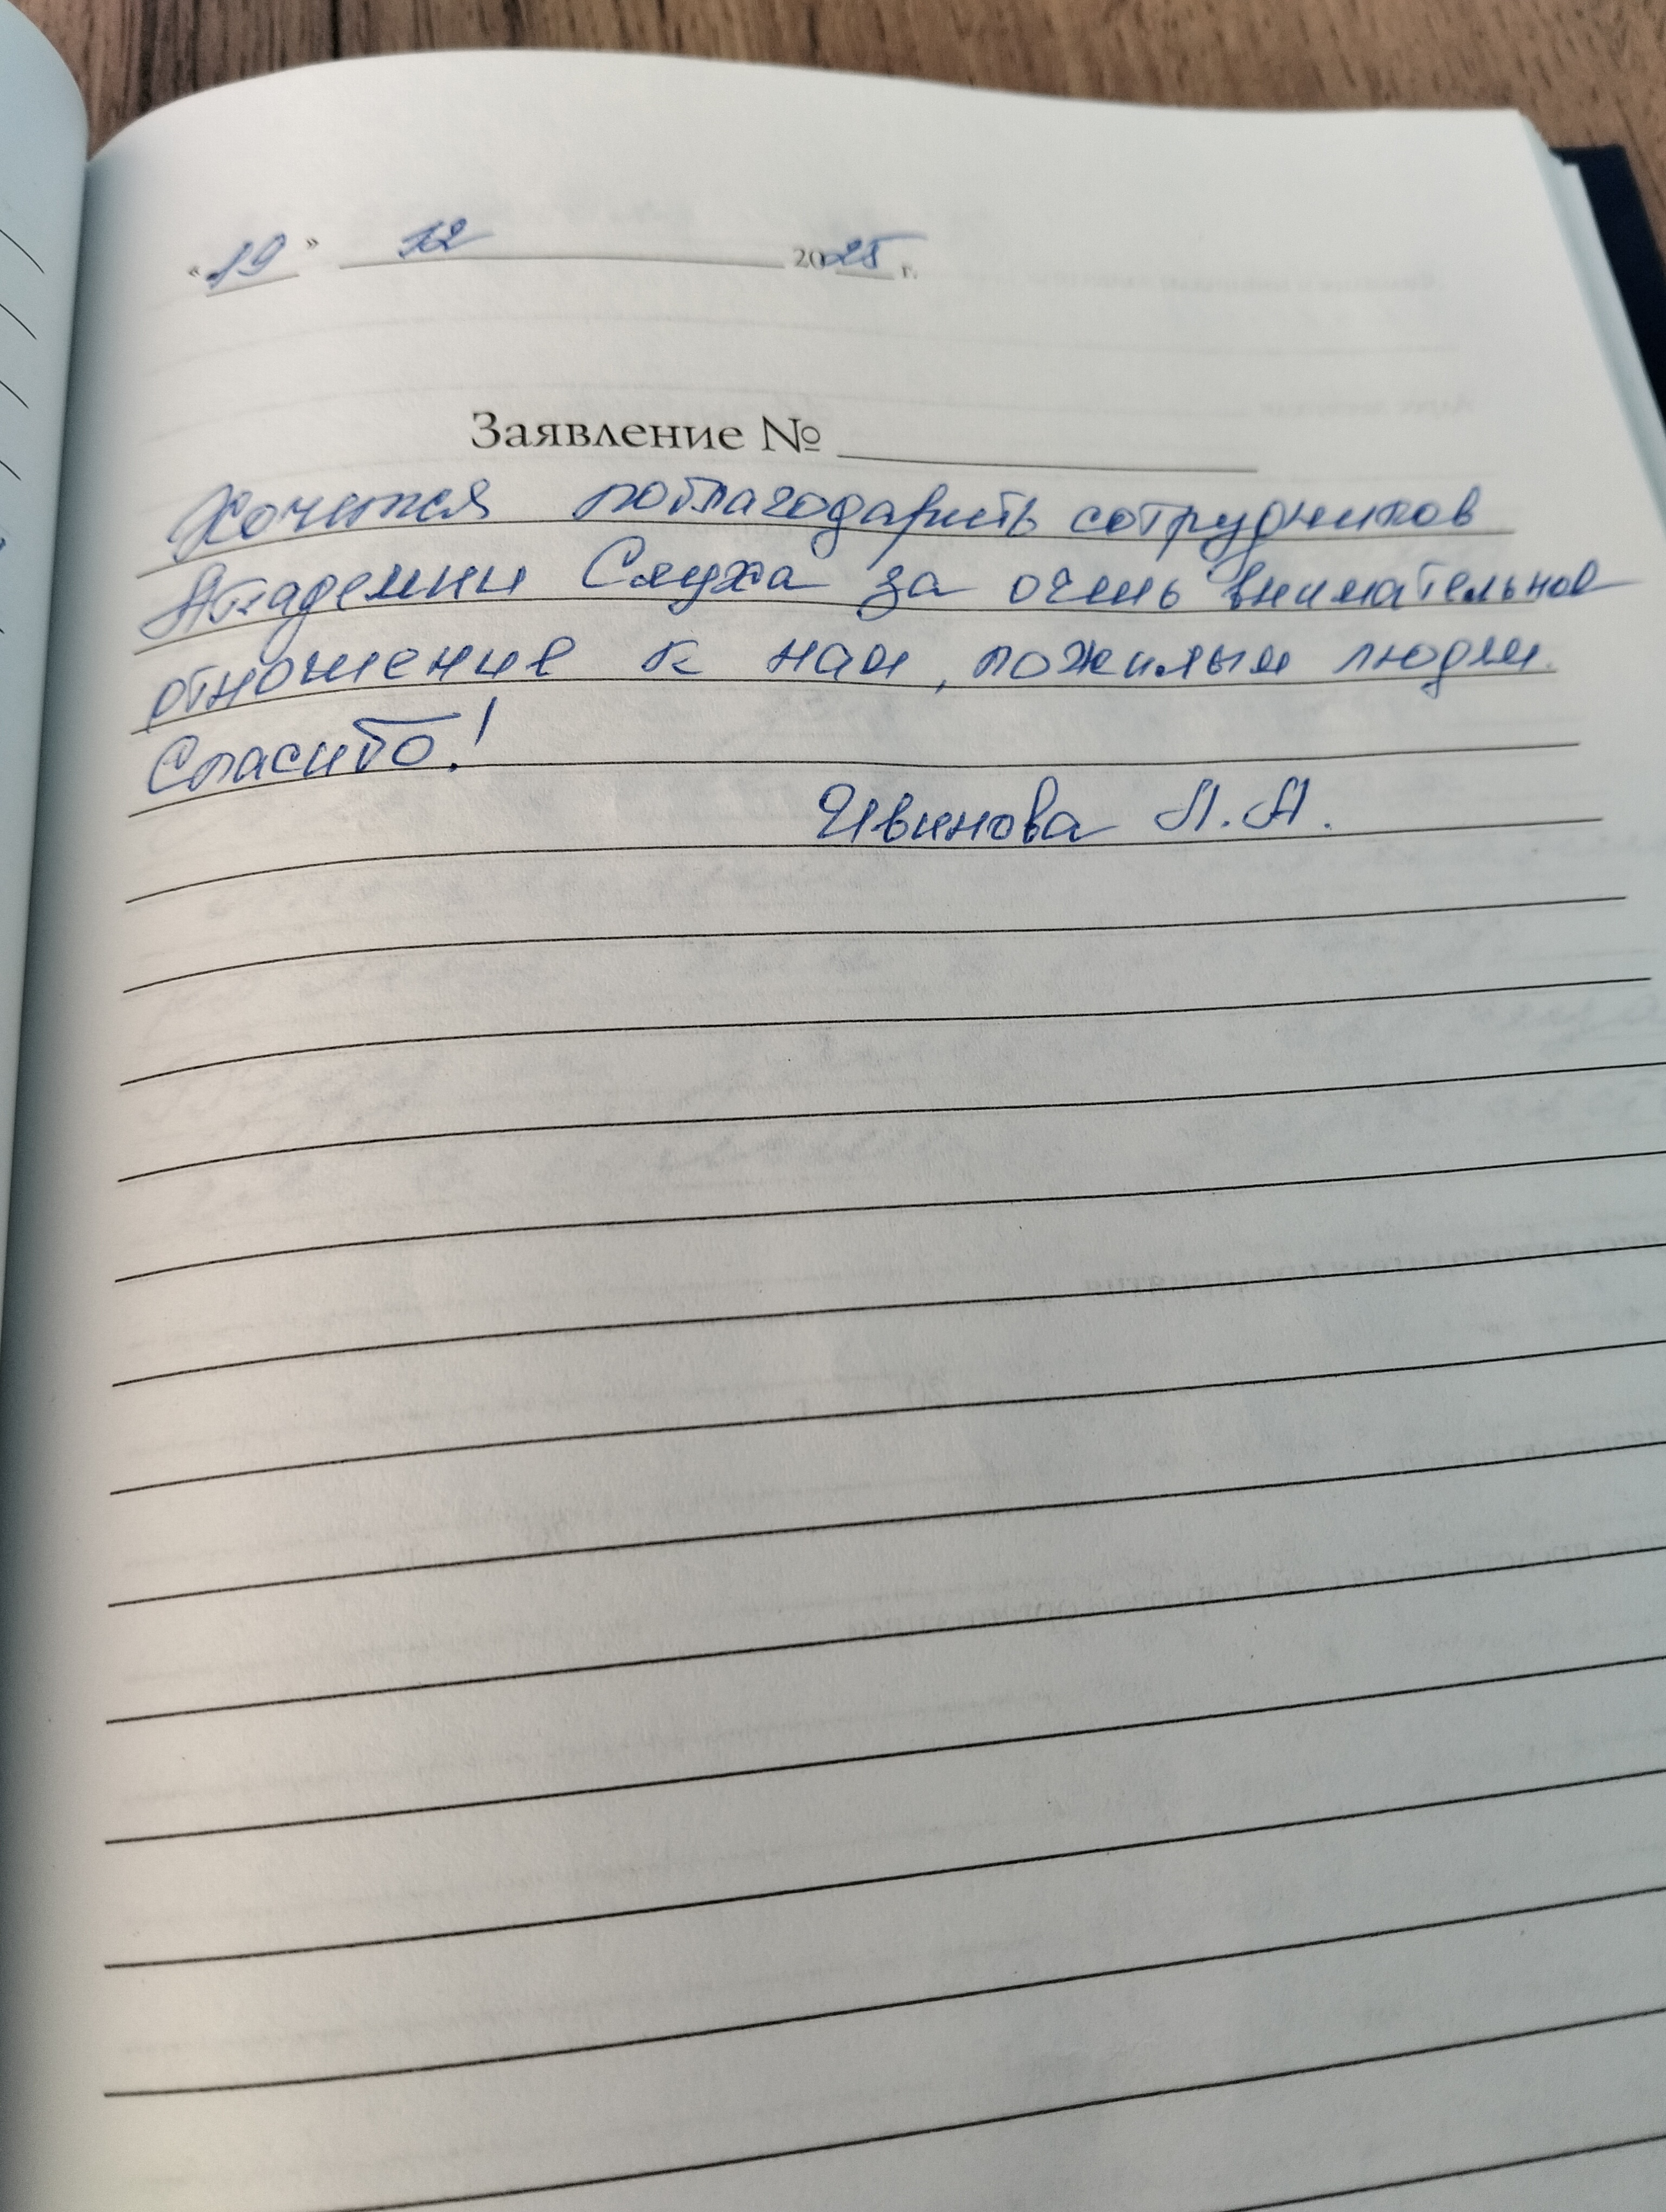 «19» 12 2025 г.
Заявление №
Хочется поблагодарить сотрудников
Академии Слуха за очень внимательное
отношение к нам, пожилым людям.
Спасибо!
Ивинова Л.А.